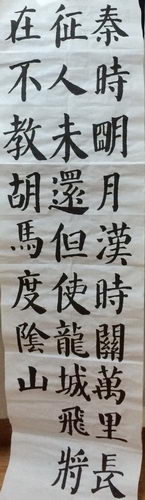 秦時明月漢時關萬里長
征人未還但使龍城飛將
在不教胡馬度陰山